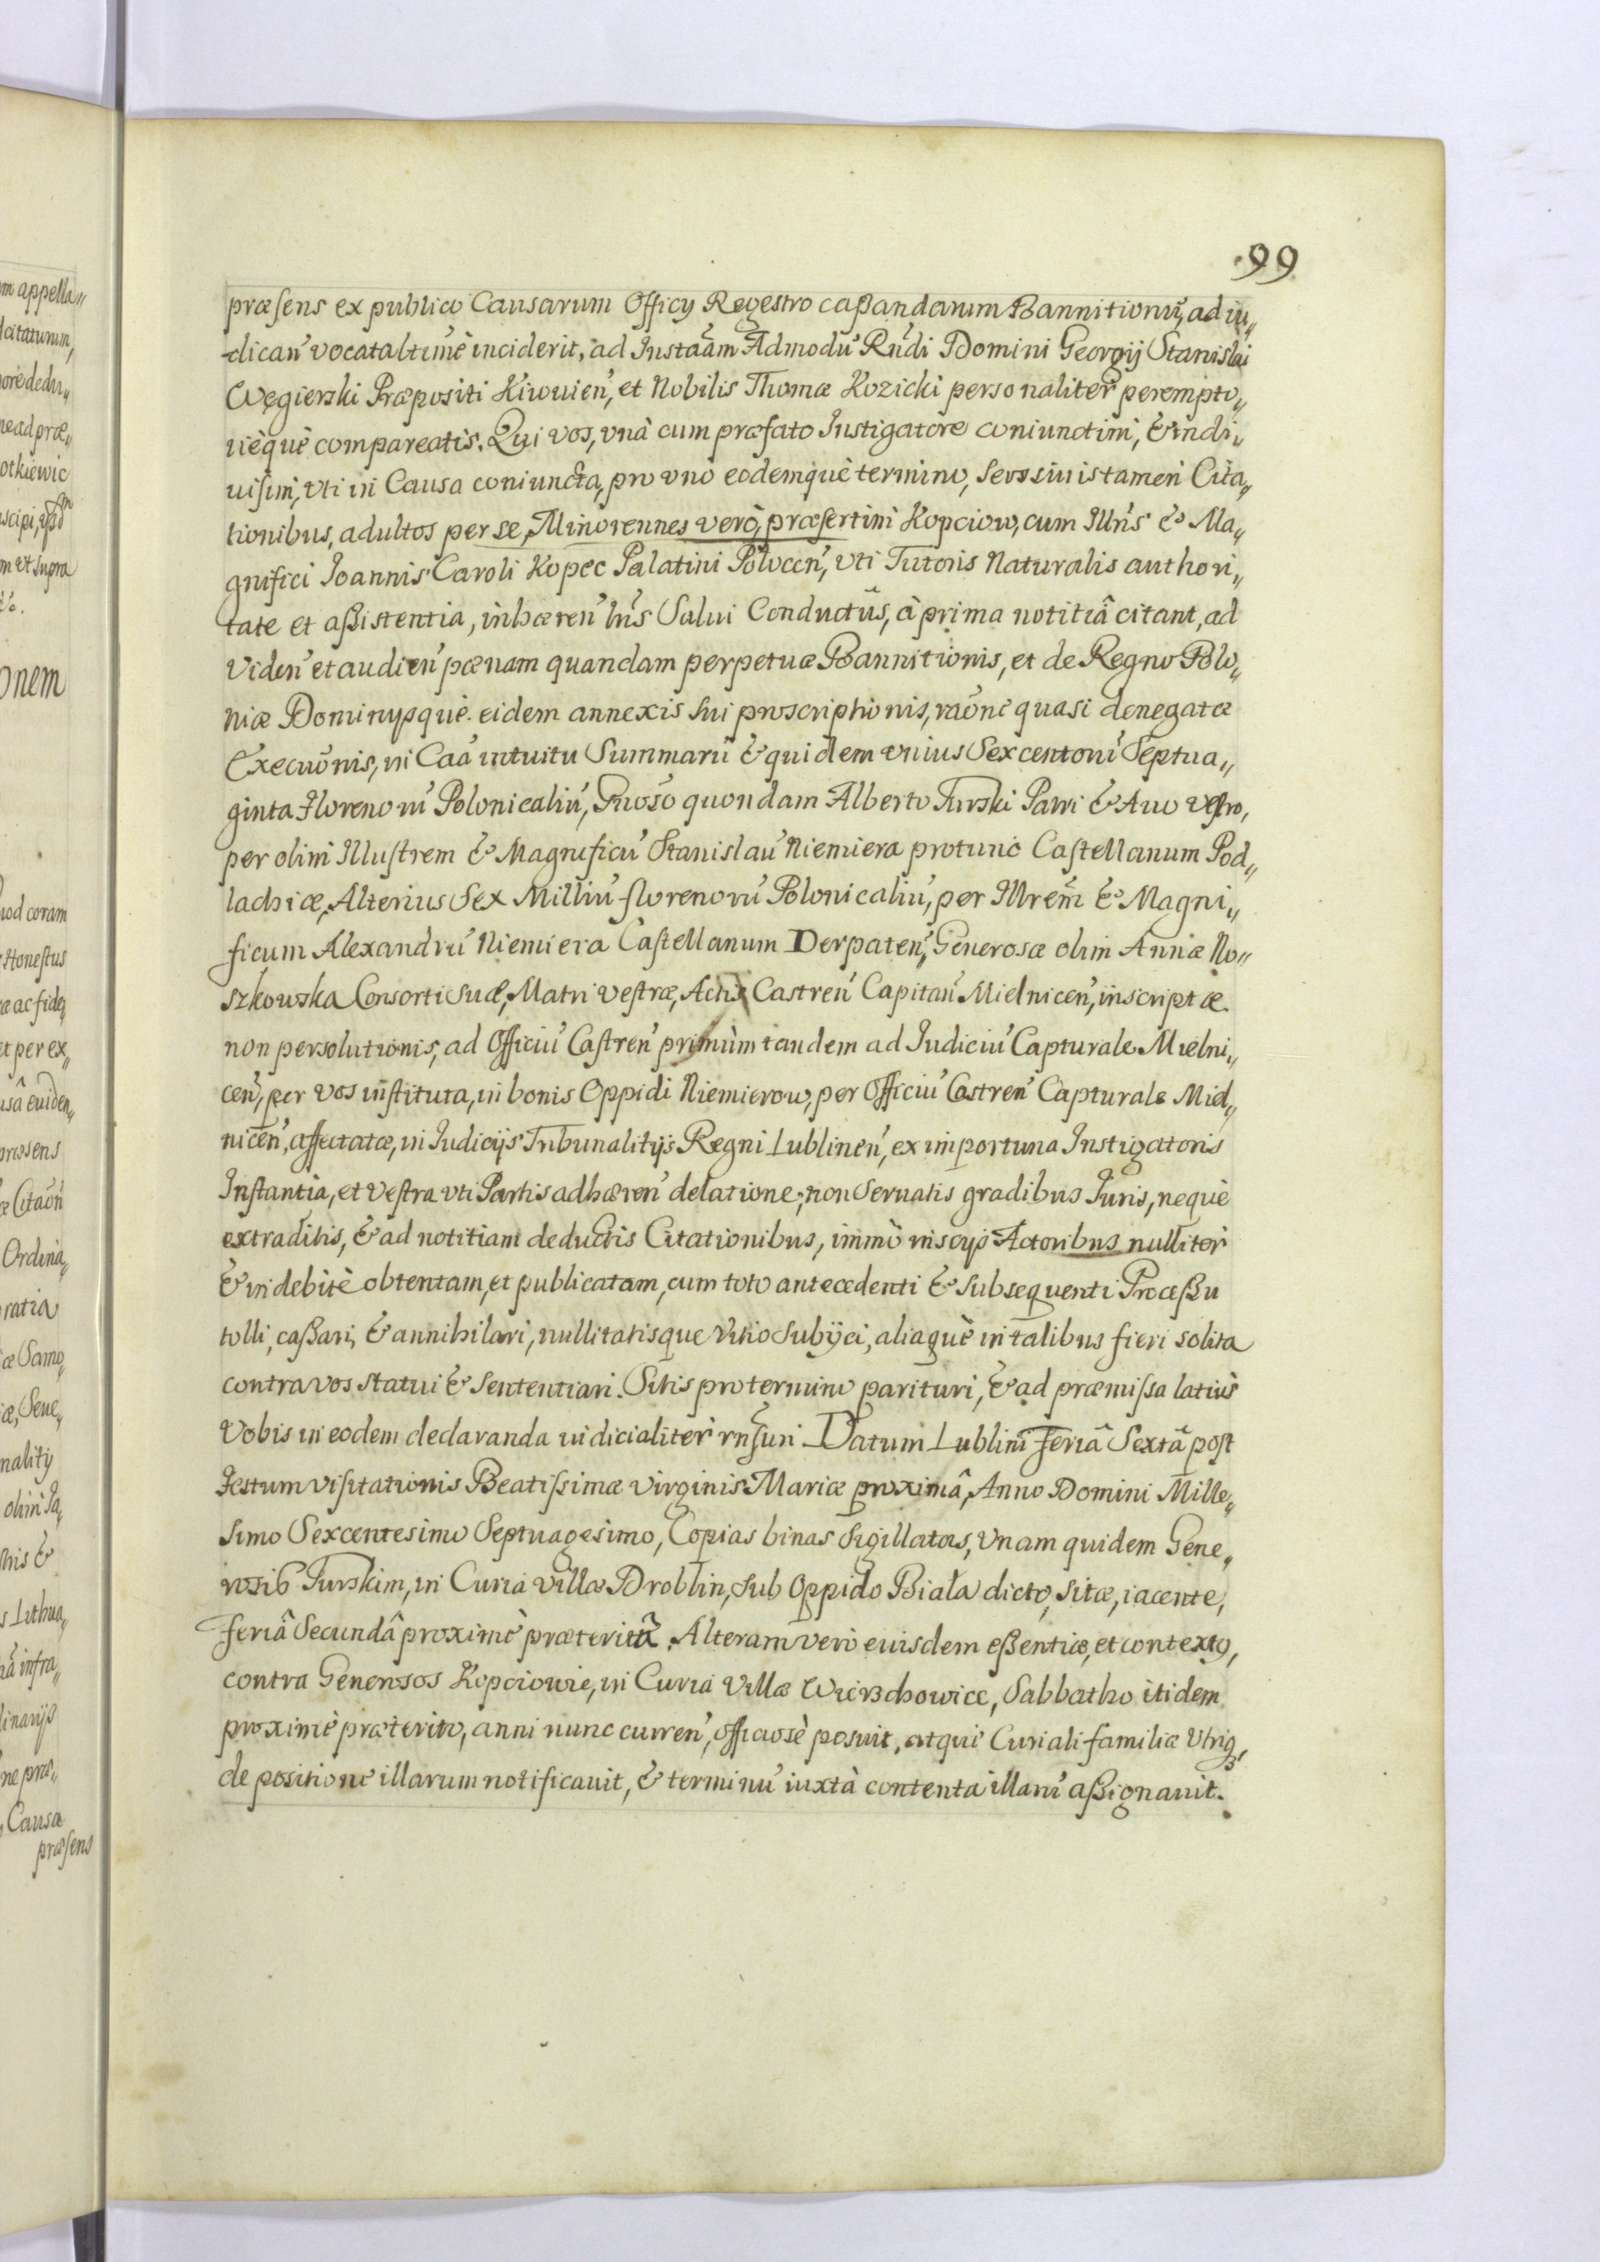 99
præsens ex publico Causarum Officÿ Regestro cassandarum Bannitionū, ad iu„
dicań vocata ltimè inciderit, ad Instaām Admodū Rndi Domini Georgij Stanislai
Węgierski Præpositi Kiiouień, et Nobilis Thomæ Kozicki personaliter perempto„
rièquè compareatis. Qui vos, vnà cum præfato Instigatore coniunctim, & indi„
uisim, vti in Causa coniuncta, pro vno eodemquè termino, tamen Cita„
tionibus, adultos per se, Minorennes verò, præsertim Kopciow, cum Illris & Ma„
gnifici Ioannis Caroli Kopec Palatini Polocen, vti Tutoris Naturalis authori„
tate et assistentia, inhæreń lris Salui Conductus, à prima notitiâ citant, ad
videń et audień pænam quandam perpetuæ Bannitionis, et de Regno Polo„
niæ Dominysquè eidem annexis sui proscriptionis, raōne quasi denegatæ
Execuōnis, in Caā intuitu Summarū & quidem vnius Sexcentorū Septua„
ginta Florenorū Polonicaliū, Gnoso quondam Alberto Turski Patri & Auo vestro,
per olim Illustrem & Magnificū Stanislaū Niemiera protunc Castellanum Pod„
lachiæ, Alterius Sex Milliū florenorū Polonicaliū, per Illrem & Magni„
ficum Alexandrū Niemiera Castellanum Derpateń, Generosæ olim Annæ No„
szkowska Consorti suæ, Matri vestræ, Actis Castreń Capitań Mielniceń, inscriptæ
non persolutionis, ad Officiū Castreń primùm tandem ad Iudiciū Capturale Mielni„
ceń, per vos instituta, in bonis Oppidi Niemierow, per Officiū Castreń Capturale Miel„
niceń, affectatæ, in Iudicijs Tribunalitijs Regni Lublineń, ex importuna Instigatoris
Instantia, et vestra vti Partis adhæreń delatione, non seruatis gradibus Iuris, nequè
extraditis, & ad notitiam deductis Citationibus, immò inscÿs Actoribus nulliter
& indebitè obtentam, et publicatam, cum toto antecedenti & subsequenti Processu
tolli, cassari, & annihilari, nullitatisque vitio subijci, aliaquè in talibus fieri solita
contra vos statui & sententiari. Sitis pro termino parituri, & ad præmissa latiùs
Vobis in eodem declaranda iudicialiter rnsuri. Datum Lublini feriâ Sextâ post
Festum visitationis Beatissimæ virginis Mariæ proximâ, Anno Domini Mille„
simo Sexcentesimo Septuagesimo, Copias binas sigillatas, vnam quidem Gene„
rosis Turskim, in Curia villæ Droblin, sub Oppido Biała dicto, sitæ, iacente,
feriâ Secundâ proximè præteritâ. Alteram verò euisdem essentiæ, et contextg,
contra Generosos Kopciowie, in Curia villæ Wierzchowice, Sabbatho itidem
proximè præterito, anni nunc curreń, officiosè posuit, atquè Curiali familiæ Vtrigz,
de positione illarum notificauit, & terminū iuxtà contenta illarū assignauit.